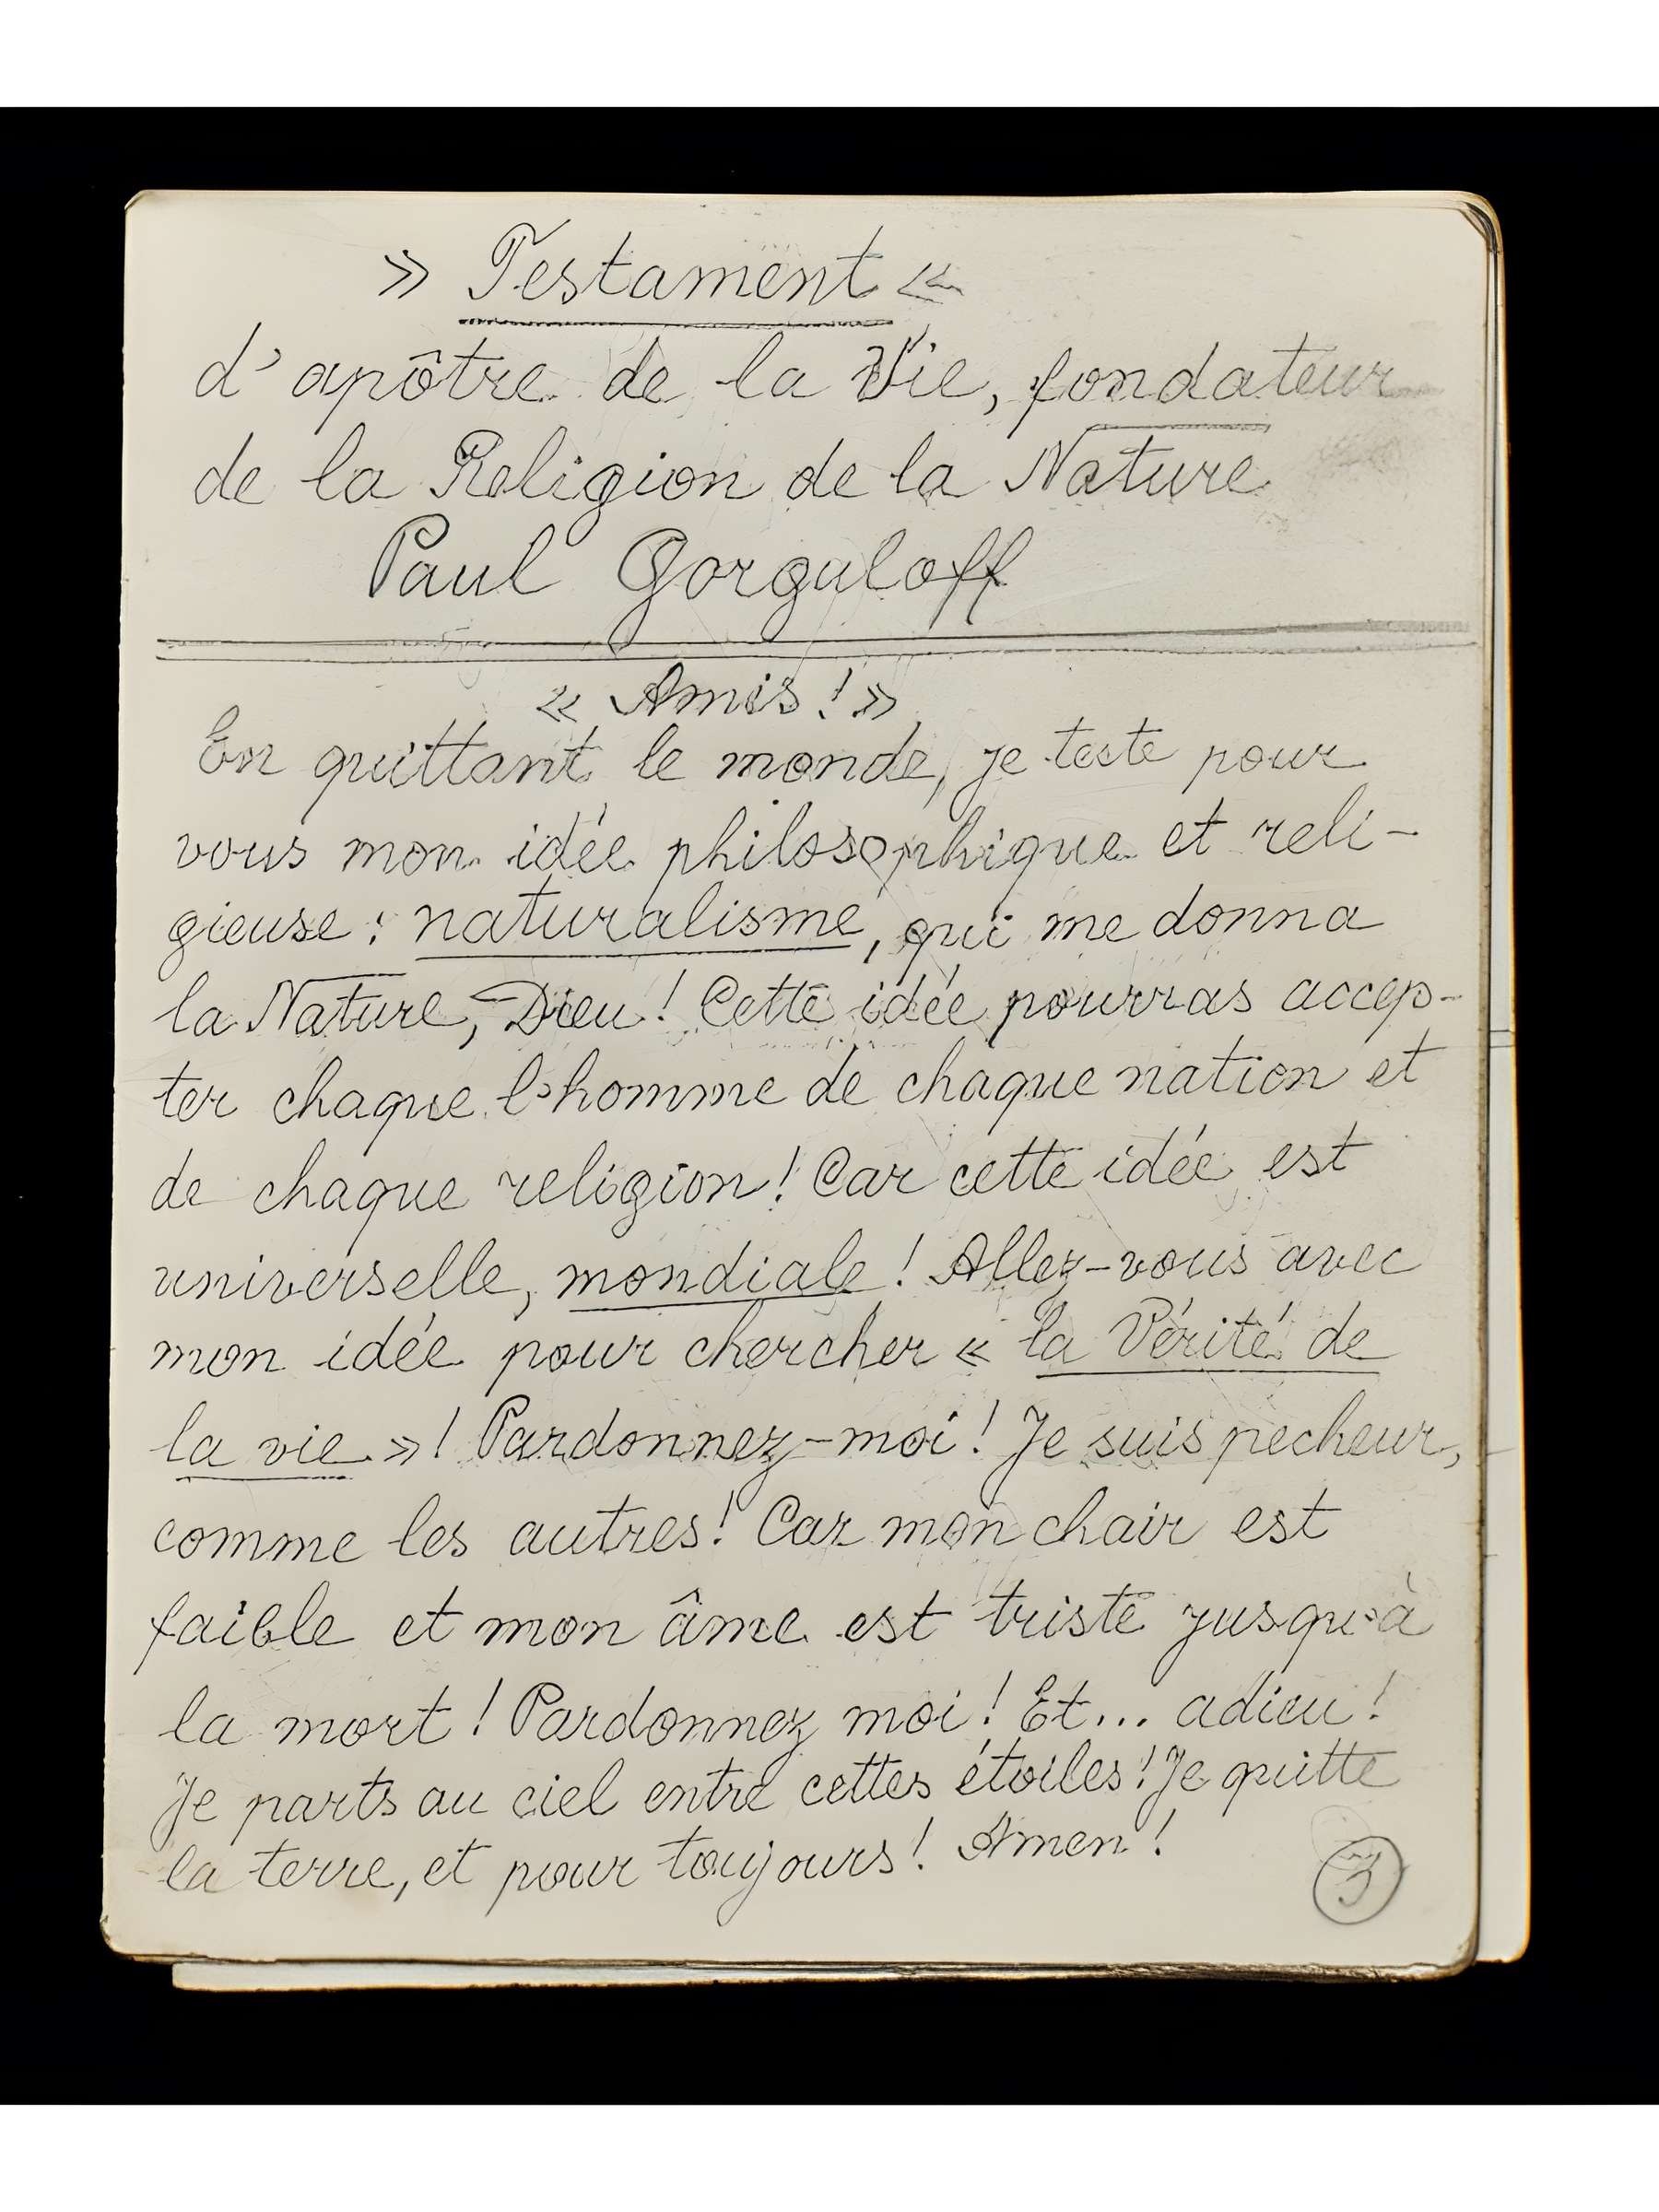 » Testament «
d'apôtre de la Vie, fondateur
de la Religion de la Nature
Paul Gorguloff
« Amis ! »
En quittant le monde, je teste pour
vous mon idée philosophique et reli-
gieuse : naturalisme, qui me donna
la Nature, Dieu ! Cette idée pourras accep-
ter chaque l'homme de chaque nation et
de chaque religion ! Car cette idée est
universelle, mondiale ! Allez-vous avec
mon idée pour chercher « la Vérité de
la vie » ! Pardonnez-moi ! Je suis pecheur,
comme les autres ! Car mon chair est
faible et mon âme est triste jusqu'à
la mort ! Pardonnez moi ! Et... adieu !
Je parts au ciel entre cettes étoiles ! Je quitte
la terre, et pour toujours ! Amen !
3